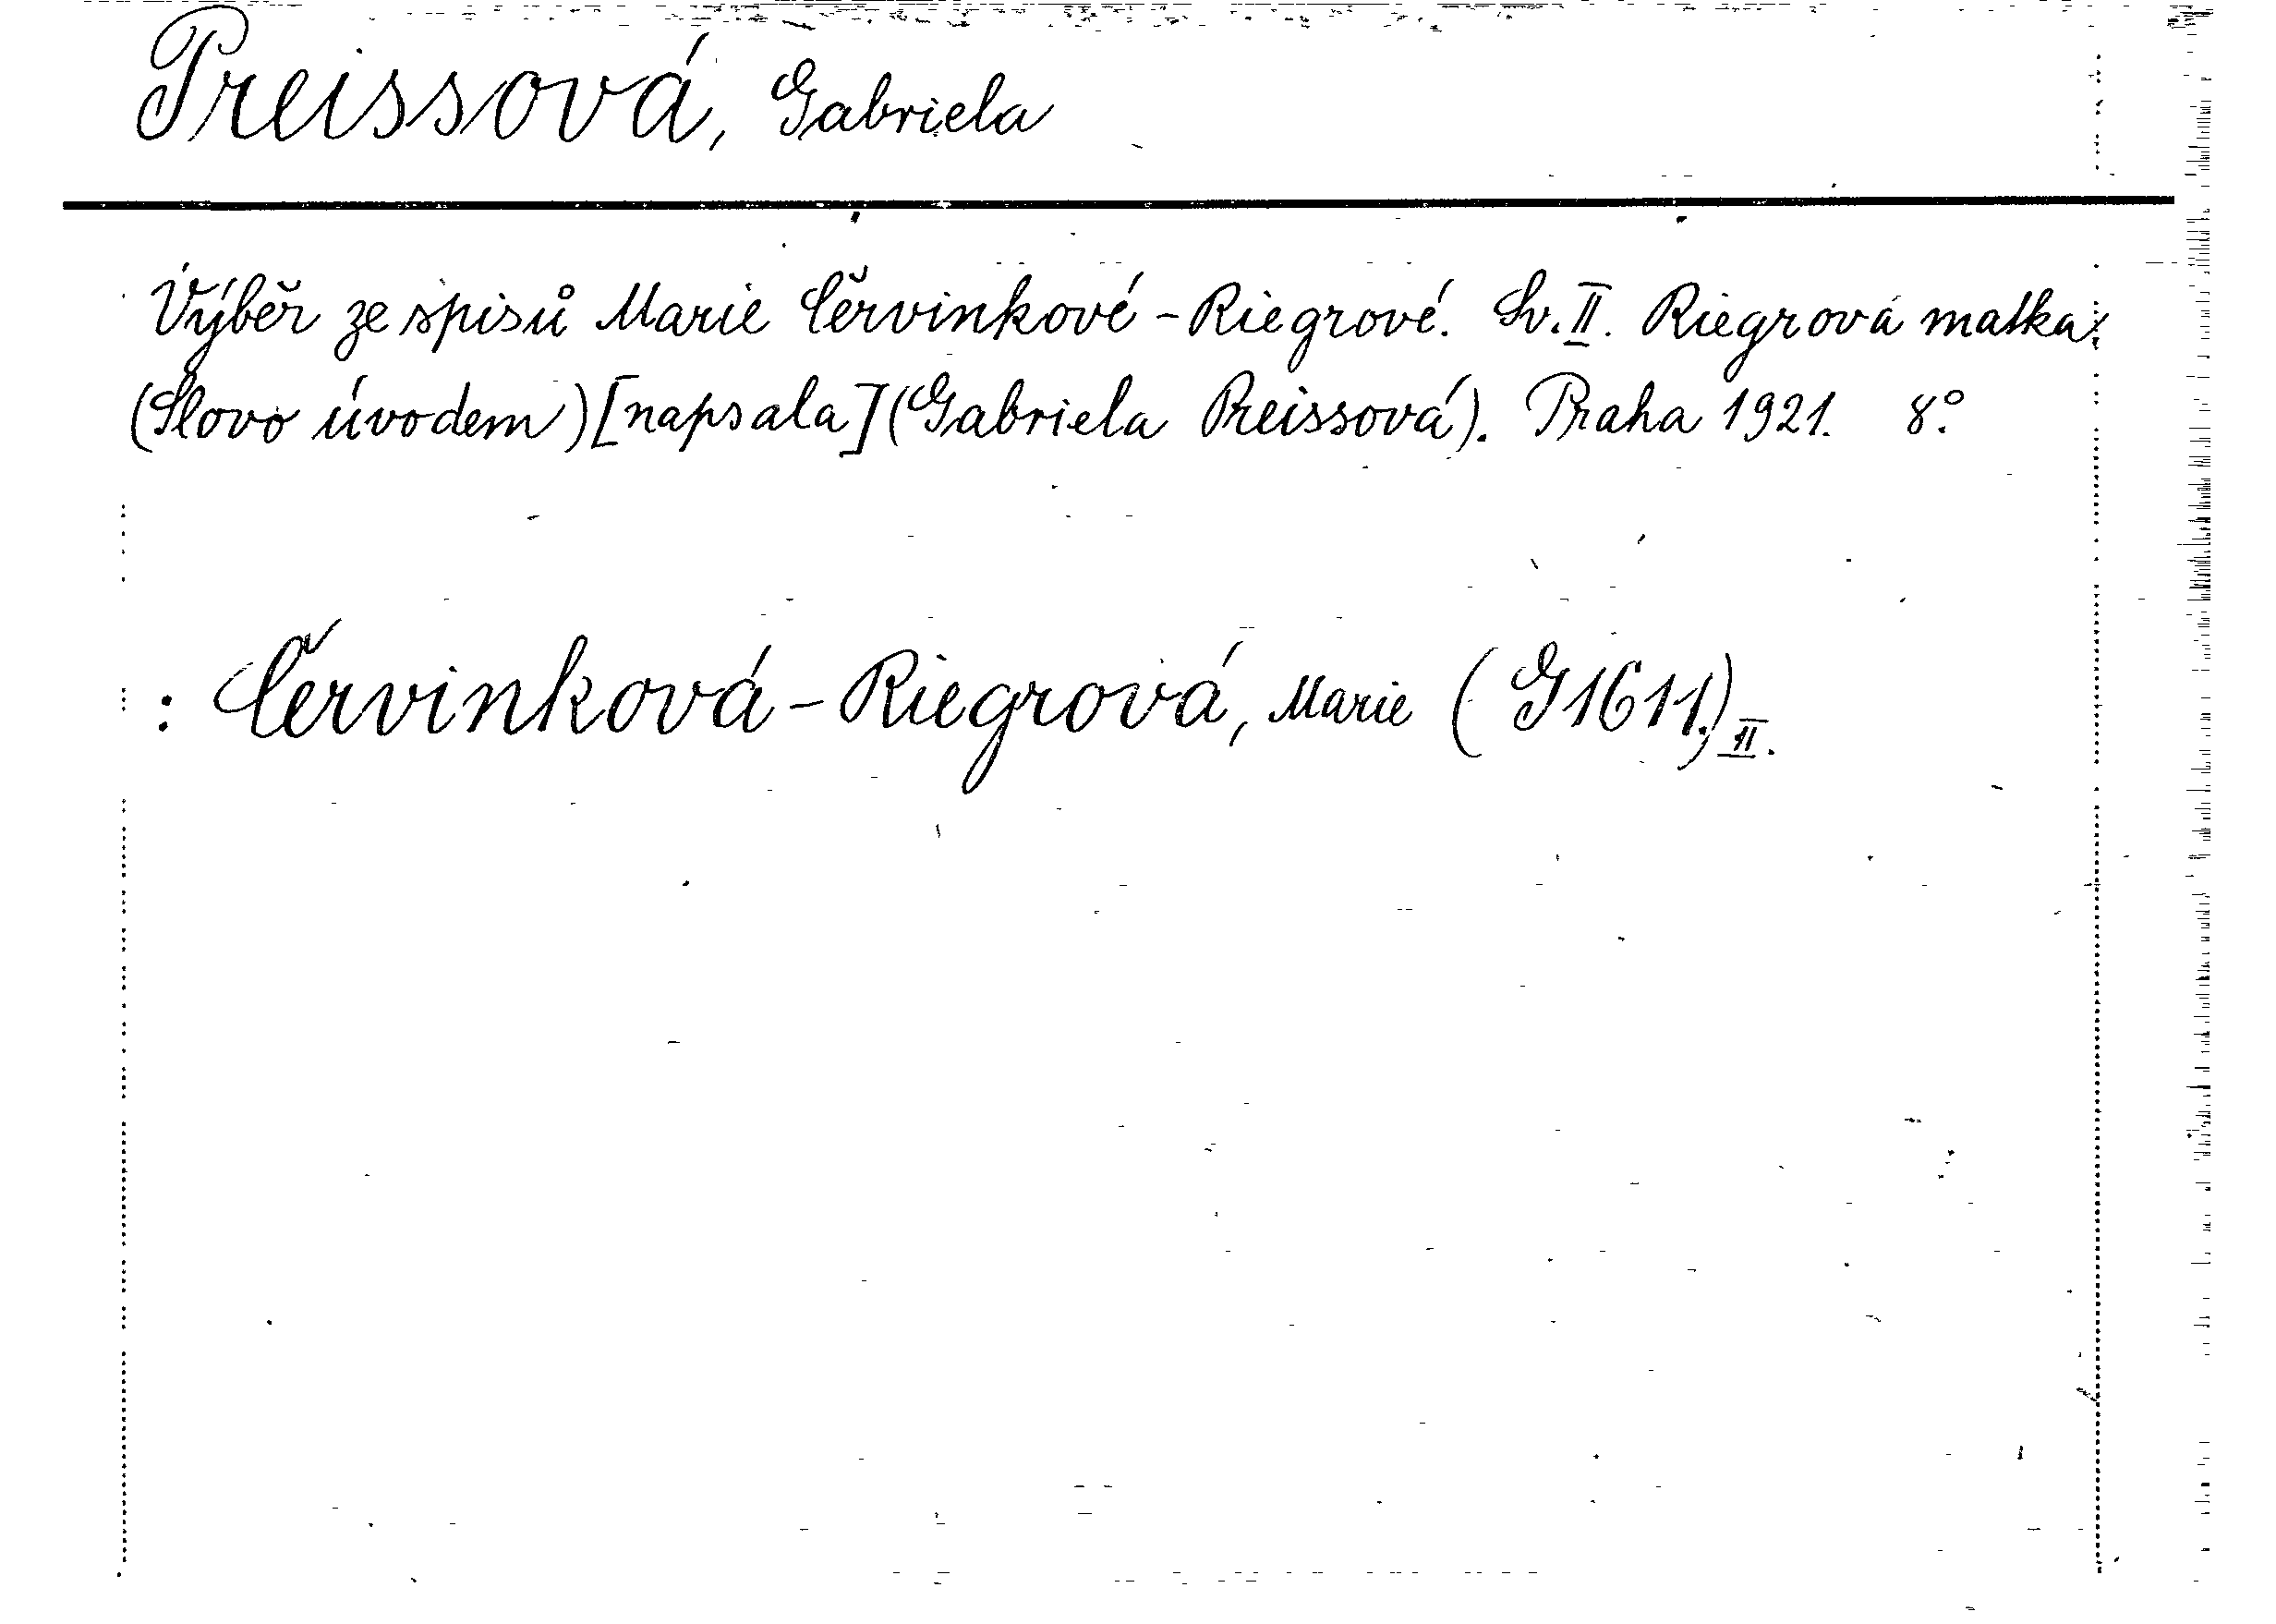 Preissová, Gabriela
Výběr ze spisů Marie Červinkové-Riegrové. Sv. II. Riegrová matka.
(Slovo úvodem) [napsala] (Gabriela Preissová). Praha 1921. 8°.
: Červinková-Riegrová, Marie (G1611.) II.